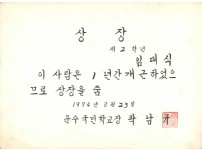 상장
제 2 학년
임대식
이 사람은 1년간 개근하였으
므로 상장을 줌
1974년 2월 23일
운수국민학교장 곽남규